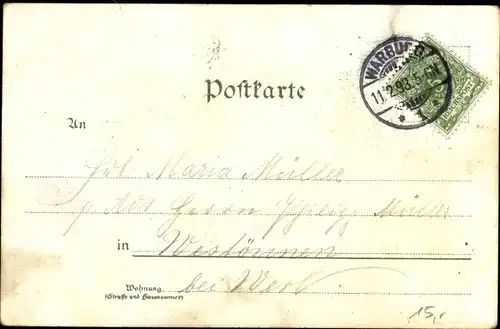 WARBURG
11.2.98. 5-6N.
* 1 *
Postkarte
An
Frl. Maria Müller
Herrn Müller
in Westönnen
bei Werl
Wohnung
(Straße und Hausnummer)
15,-